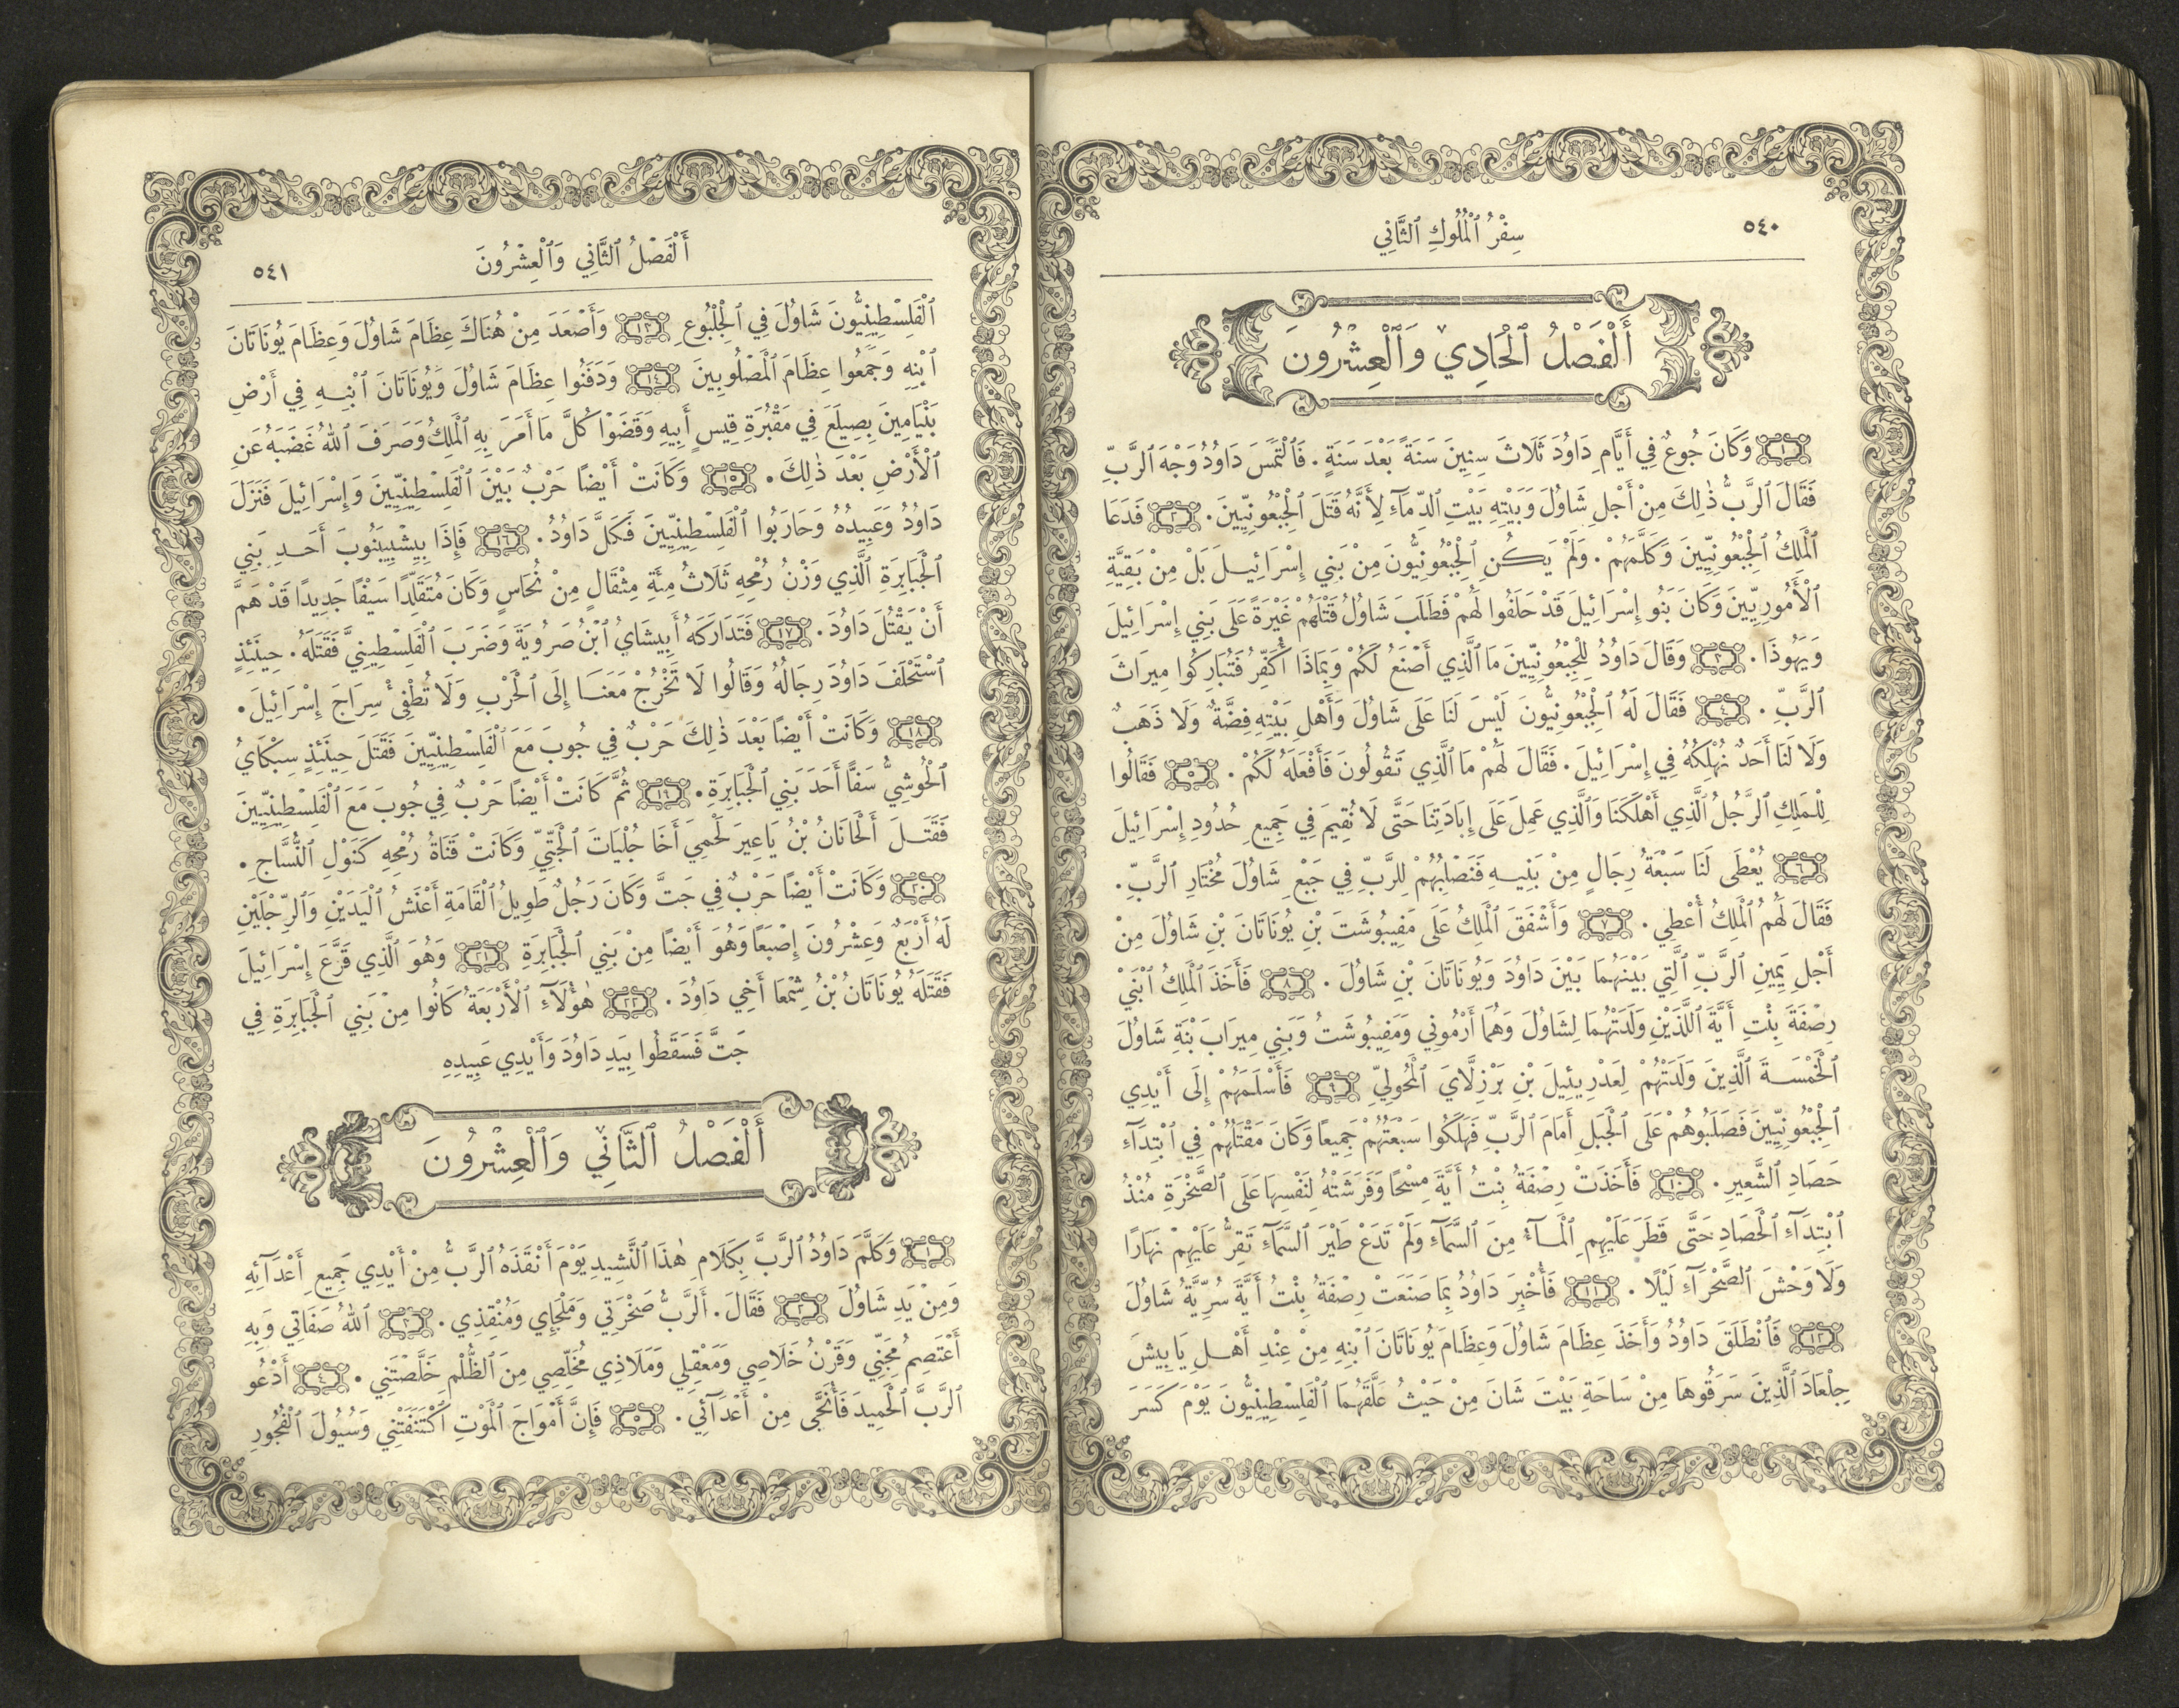 ٥٤٠
سِفْرُ ٱلْمُلُوكِ ٱلثَّانِي
أَلْفَصْلُ ٱلْحَادِي وَٱلْعِشْرُونَ
﴿١﴾ وَكَانَ جُوعٌ فِي أَيَّامِ دَاوُدَ ثَلَاثَ سِنِينَ سَنَةً بَعْدَ سَنَةٍ. فَٱلْتَمَسَ دَاوُدُ وَجْهَ ٱلرَّبِّ
فَقَالَ ٱلرَّبُّ ذٰلِكَ مِنْ أَجْلِ شَاوُلَ وَبَيْتِهِ بَيْتِ ٱلدِّمَاءِ لِأَنَّهُ قَتَلَ ٱلْجِبْعُونِيِّينَ. ﴿٢﴾ فَدَعَا
ٱلْمَلِكُ ٱلْجِبْعُونِيِّينَ وَكَلَّمَهُمْ. وَلَمْ يَكُنِ ٱلْجِبْعُونِيُّونَ مِنْ بَنِي إِسْرَائِيلَ بَلْ مِنْ بَقِيَّةِ
ٱلْأَمُورِيِّينَ وَكَانَ بَنُو إِسْرَائِيلَ قَدْ حَلَفُوا لَهُمْ فَطَلَبَ شَاوُلُ قَتْلَهُمْ غَيْرَةً عَلَى بَنِي إِسْرَائِيلَ
وَيَهُوذَا. ﴿٣﴾ وَقَالَ دَاوُدُ لِلْجِبْعُونِيِّينَ مَا ٱلَّذِي أَصْنَعُ لَكُمْ وَبِمَاذَا أُكَفِّرُ فَتُبَارِكُوا مِيرَاثَ
ٱلرَّبِّ. ﴿٤﴾ فَقَالَ لَهُ ٱلْجِبْعُونِيُّونَ لَيْسَ لَنَا عَلَى شَاوُلَ وَأَهْلِ بَيْتِهِ فِضَّةٌ وَلَا ذَهَبٌ
وَلَا لَنَا أَحَدٌ نُهْلِكُهُ فِي إِسْرَائِيلَ. فَقَالَ لَهُمْ مَا ٱلَّذِي تَقُولُونَ فَأَفْعَلَهُ لَكُمْ. ﴿٥﴾ فَقَالُوا
لِلْمَلِكِ ٱلرَّجُلُ ٱلَّذِي أَهْلَكَنَا وَٱلَّذِي عَمِلَ عَلَى إِبَادَتِنَا حَتَّى لَا نُقِيمَ فِي جَمِيعِ حُدُودِ إِسْرَائِيلَ
﴿٦﴾ يُعْطَى لَنَا سَبْعَةُ رِجَالٍ مِنْ بَنِيهِ فَنَصْلِبُهُمْ لِلرَّبِّ فِي جَبْعِ شَاوُلَ مُخْتَارِ ٱلرَّبِّ.
فَقَالَ لَهُمُ ٱلْمَلِكُ أُعْطِي. ﴿٧﴾ وَأَشْفَقَ ٱلْمَلِكُ عَلَى مَفِيبُوشَتَ بْنِ يُونَاتَانَ بْنِ شَاوُلَ مِنْ
أَجْلِ يَمِينِ ٱلرَّبِّ ٱلَّتِي بَيْنَهُمَا بَيْنَ دَاوُدَ وَيُونَاتَانَ بْنِ شَاوُلَ. ﴿٨﴾ فَأَخَذَ ٱلْمَلِكُ ٱبْنَيْ
رِصْفَةَ بِنْتِ أَيَّةَ ٱللَّذَيْنِ وَلَدَتْهُمَا لِشَاوُلَ وَهُمَا أَرْمُونِي وَمَفِيبُوشَتُ وَبَنِي مِيرَابَ بْنَةِ شَاوُلَ
ٱلْخَمْسَةَ ٱلَّذِينَ وَلَدَتْهُمْ لِعَدْرِيئِيلَ بْنِ بَرْزِلَّايَ ٱلْمَحُولِيِّ ﴿٤﴾ فَأَسْلَمَهُمْ إِلَى أَيْدِي
ٱلْجِبْعُونِيِّينَ فَصَلَبُوهُمْ عَلَى ٱلْجَبَلِ أَمَامَ ٱلرَّبِّ فَهَلَكُوا سَبْعَتُهُمْ جَمِيعًا وَكَانَ مَقْتَلُهُمْ فِي ٱبْتِدَاءِ
حَصَادِ ٱلشَّعِيرِ. ﴿١٠﴾ فَأَخَذَتْ رِصْفَةُ بِنْتُ أَيَّةَ مِسْحًا وَفَرَشَتْهُ لِنَفْسِهَا عَلَى ٱلصَّخْرَةِ مُنْذُ
ٱبْتِدَاءِ ٱلْحَصَادِ حَتَّى قَطَرَ عَلَيْهِمِ ٱلْمَاءُ مِنَ ٱلسَّمَاءِ وَلَمْ تَدَعْ طَيْرَ ٱلسَّمَاءِ تَقِرُّ عَلَيْهِمْ نَهَارًا
وَلَا وَحْشَ ٱلصَّحْرَاءِ لَيْلًا. ﴿١١﴾ فَأُخْبِرَ دَاوُدُ بِمَا صَنَعَتْ رِصْفَةُ بِنْتُ أَيَّةَ سُرِّيَّةُ شَاوُلَ
﴿١٢﴾ فَٱنْطَلَقَ دَاوُدُ وَأَخَذَ عِظَامَ شَاوُلَ وَعِظَامَ يُونَاتَانَ ٱبْنِهِ مِنْ عِنْدِ أَهْلِ يَابِيشَ
جِلْعَادَ ٱلَّذِينَ سَرَقُوهَا مِنْ سَاحَةِ بَيْتَ شَانَ مِنْ حَيْثُ عَلَّقَهُمَا ٱلْفَلِسْطِينِيُّونَ يَوْمَ كَسَرَ
أَلْفَصْلُ ٱلثَّانِي وَٱلْعِشْرُونَ
٥٤١
ٱلْفَلِسْطِينِيُّونَ شَاوُلَ فِي ٱلْجِلْبُوعِ ﴿١٣﴾ وَأَصْعَدَ مِنْ هُنَاكَ عِظَامَ شَاوُلَ وَعِظَامَ يُونَاتَانَ
ٱبْنِهِ وَجَمَعُوا عِظَامَ ٱلْمَصْلُوبِينَ ﴿١٤﴾ وَدَفَنُوا عِظَامَ شَاوُلَ وَيُونَاتَانَ ٱبْنِهِ فِي أَرْضِ
بَنْيَامِينَ بِصِيلَعَ فِي مَقْبُرَةِ قِيسٍ أَبِيهِ وَقَضَوْا كُلَّ مَا أَمَرَ بِهِ ٱلْمَلِكُ وَصَرَفَ ٱللهُ غَضَبَهُ عَنِ
ٱلْأَرْضِ بَعْدَ ذٰلِكَ. ﴿١٥﴾ وَكَانَتْ أَيْضًا حَرْبٌ بَيْنَ ٱلْفَلِسْطِينِيِّينَ وَإِسْرَائِيلَ فَنَزَلَ
دَاوُدُ وَعَبِيدُهُ وَحَارَبُوا ٱلْفَلِسْطِينِيِّينَ فَكَلَّ دَاوُدُ. ﴿١٦﴾ فَإِذَا بِيِشْبِيبَنُوبَ أَحَدِ بَنِي
ٱلْجَبَابِرَةِ ٱلَّذِي وَزْنُ رُمْحِهِ ثَلَاثُ مِئَةِ مِثْقَالٍ مِنْ نُحَاسٍ وَكَانَ مُتَقَلِّدًا سَيْفًا جَدِيدًا قَدْ هَمَّ
أَنْ يَقْتُلَ دَاوُدَ. ﴿١٧﴾ فَتَدَارَكَهُ أَبِيشَايُ ٱبْنُ صَرُويَةَ وَضَرَبَ ٱلْفَلِسْطِينِيَّ فَقَتَلَهُ. حِينَئِذٍ
ٱسْتَحْلَفَ دَاوُدَ رِجَالُهُ وَقَالُوا لَا تَخْرُجْ مَعَنَا إِلَى ٱلْحَرْبِ وَلَا تُطْفِئْ سِرَاجَ إِسْرَائِيلَ.
﴿١٨﴾ وَكَانَتْ أَيْضًا بَعْدَ ذٰلِكَ حَرْبٌ فِي جُوبَ مَعَ ٱلْفَلِسْطِينِيِّينَ فَقَتَلَ حِينَئِذٍ سِبْكَايُ
ٱلْحُوشِيُّ سَفًّا أَحَدَ بَنِي ٱلْجَبَابِرَةِ. ﴿١٩﴾ ثُمَّ كَانَتْ أَيْضًا حَرْبٌ فِي جُوبَ مَعَ ٱلْفَلِسْطِينِيِّينَ
فَقَتَلَ أَلْحَانَانُ بْنُ يَاعِيرَ لَحْمِيَ أَخَا جُلْيَاتَ ٱلْجَتِّيِّ وَكَانَتْ قَنَاةُ رُمْحِهِ كَنَوْلِ ٱلنُّسَّاجِ.
﴿٢٠﴾ وَكَانَتْ أَيْضًا حَرْبٌ فِي جَتَّ وَكَانَ رَجُلٌ طَوِيلُ ٱلْقَامَةِ أَعْنَشُ ٱلْيَدَيْنِ وَٱلرِّجْلَيْنِ
لَهُ أَرْبَعٌ وَعِشْرُونَ إِصْبَعًا وَهُوَ أَيْضًا مِنْ بَنِي ٱلْجَبَابِرَةِ ﴿٢١﴾ وَهُوَ ٱلَّذِي قَرَّعَ إِسْرَائِيلَ
فَقَتَلَهُ يُونَاتَانُ بْنُ شِمْعَا أَخِي دَاوُدَ. ﴿٢٢﴾ هٰؤُلَاءِ ٱلْأَرْبَعَةُ كَانُوا مِنْ بَنِي ٱلْجَبَابِرَةِ فِي
جَتَّ فَسَقَطُوا بِيَدِ دَاوُدَ وَأَيْدِي عَبِيدِهِ
أَلْفَصْلُ ٱلثَّانِي وَٱلْعِشْرُونَ
﴿١﴾ وَكَلَّمَ دَاوُدُ ٱلرَّبَّ بِكَلَامِ هٰذَا ٱلنَّشِيدِ يَوْمَ أَنْقَذَهُ ٱلرَّبُّ مِنْ أَيْدِي جَمِيعِ أَعْدَائِهِ
وَمِنْ يَدِ شَاوُلَ ﴿٢﴾ فَقَالَ. أَلرَّبُّ صَخْرَتِي وَمَلْجَإِي وَمُنْقِذِي. ﴿٣﴾ ٱللهُ صَفَاتِي وَبِهِ
أَعْتَصِمُ مِجَنِّي وَقَرْنُ خَلَاصِي وَمَعْقِلِي وَمَلَاذِي مُخَلِّصِي مِنَ ٱلظُّلْمِ خَلَّصْتَنِي. ﴿٤﴾ أَدْعُو
ٱلرَّبَّ ٱلْحَمِيدَ فَأُنَجَّى مِنْ أَعْدَائِي. ﴿٥﴾ فَإِنَّ أَمْوَاجَ ٱلْمَوْتِ ٱكْتَنَفَتْنِي وَسُيُولَ ٱلْفُجُورِ